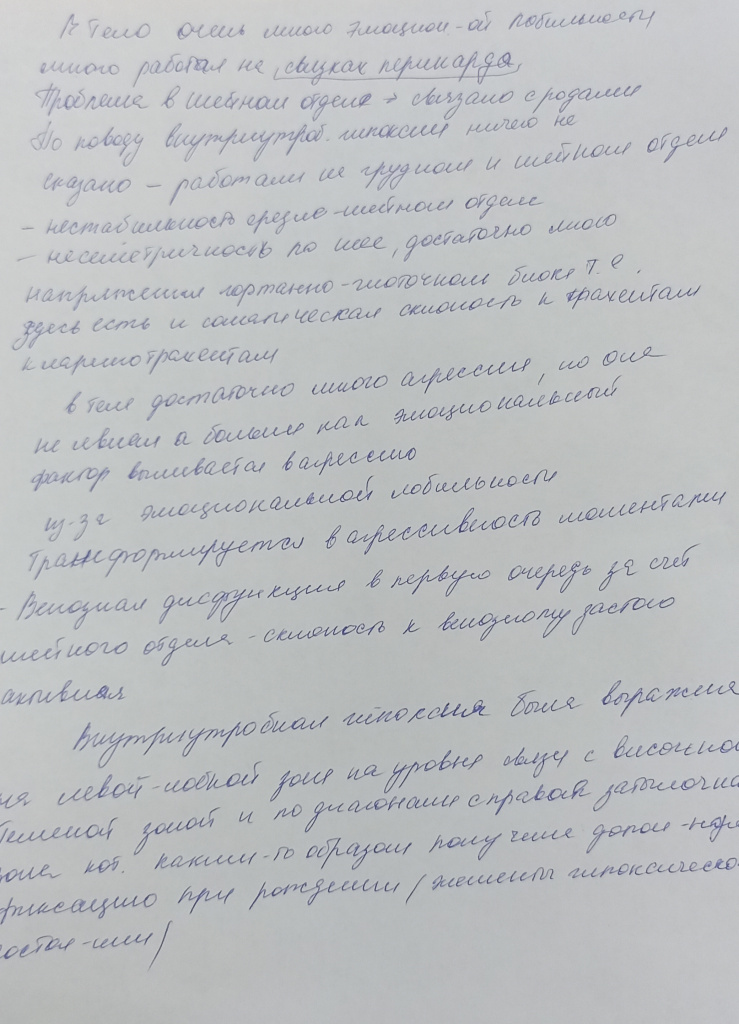 В тело очень много эмоцион-ой лобильности
много работал на связках перикарда.
Проблема в шейном отделе → связано с родами
По поводу внутриутроб. гипоксии ничего не
сказано – работали на грудном и шейном отделе
– нестабильность средне-шейном отделе
– несиметричность по шее, достаточно много
напряжения гортанно-глоточном блоке т.е.
здесь есть и соматическая склоность к трахеитам
к ларинотрахеитам
в теле достаточно много агрессии, но она
не явная а больше как эмоциональный
фактор выливается в агрессию
из-за эмоциональной лобильности
Трансформируется в агрессивность моментами
– Венозная дисфункция в первую очередь за счёт
шейного отдела - склоность к венозному застою
активная
Внутриутробная гипоксия была выражена
на левой-лобной зоне на уровне связи с височно
Теменой зоной и по диагонали справой затылочна
зона кот. каким-то образом получила допол-ную
фиксацию при рождении /элементы гипоксическо
состоя-нии/